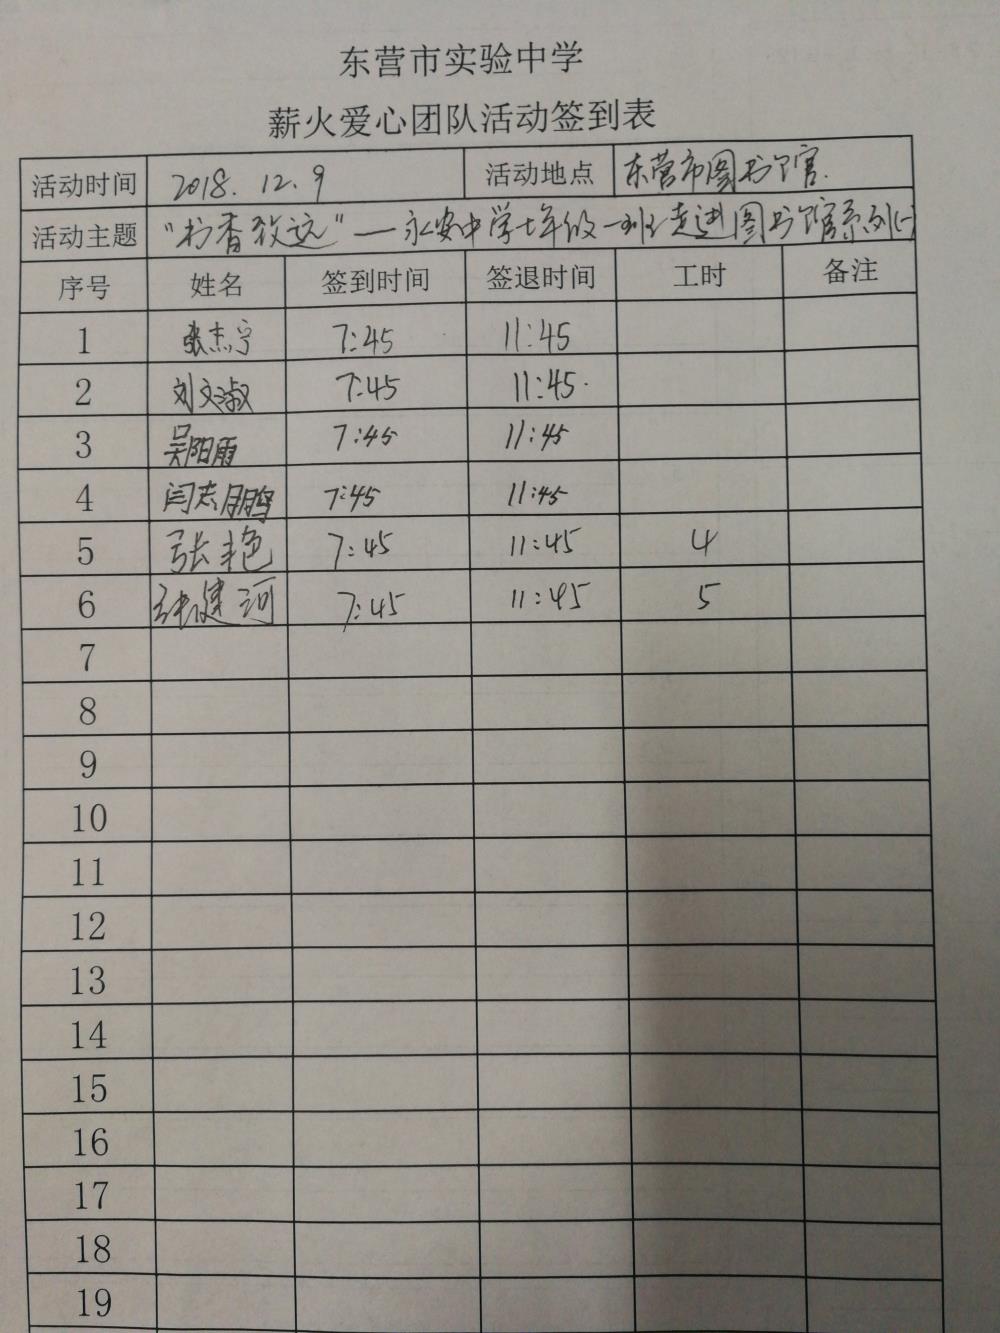 东营市实验中学
薪火爱心团队活动签到表
活动时间 2018.12.9 活动地点 东营市图书馆.
活动主题 "书香致远"—永安中学七年级一班走进图书馆系列(一)
序号 姓名 签到时间 签退时间 工时 备注
1 张志宁 7:45 11:45
2 刘文淑 7:45 11:45.
3 吴阳雨 7:45 11:45
4 闫志鹏 7:45 11:45
5 张艳 7:45 11:45 4
6 张健河 7:45 11:45 5
7
8
9
10
11
12
13
14
15
16
17
18
19